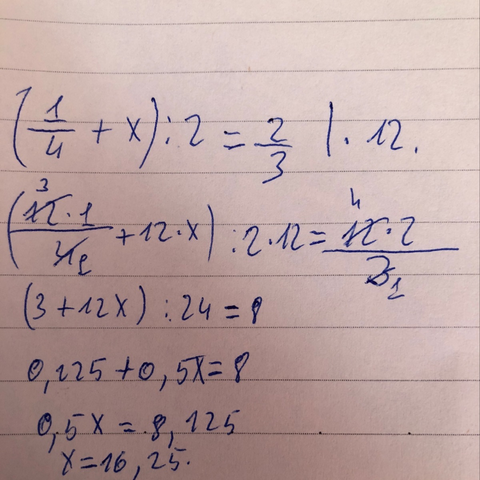 (1/4 + x) : 2 = 2/3 | · 12.
(12·1/4 + 12·x) : 2·12 = 12·2/3
(3 + 12x) : 24 = 8
0,125 + 0,5x = 8
0,5x = 8,125
x = 16,25.